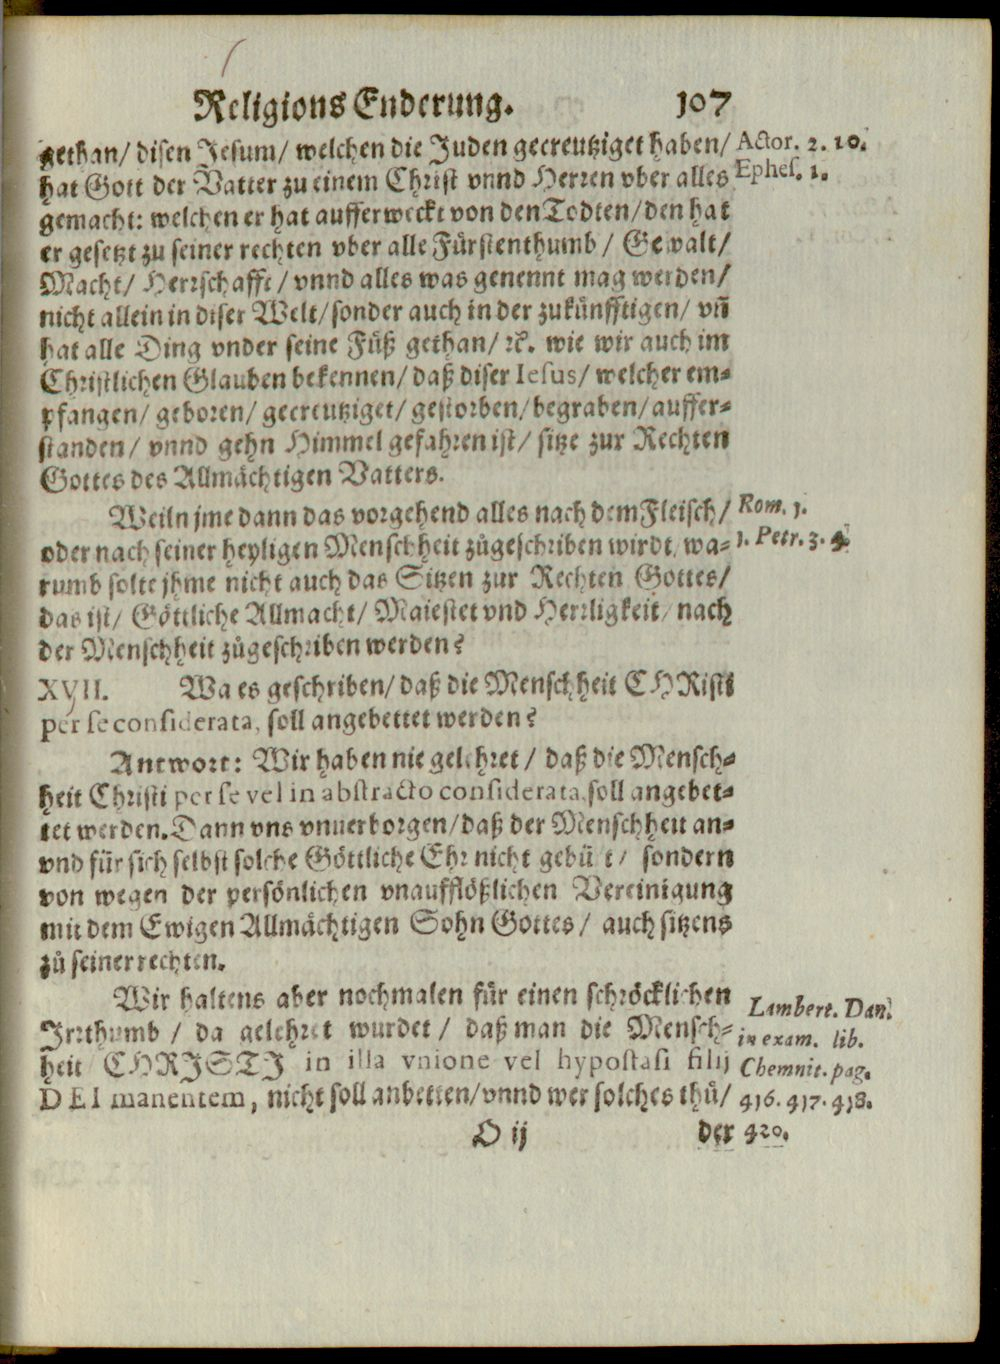 Religions Enderung. 107
gethan/ disen Jesum/ welchen die Juden gecreutziget haben/ Actor. 2. 10.
hat Gott der Vatter zu einem Christ vnnd Herren vber alles Ephes. 1.
gemacht: welchen er hat aufferweckt von den Todten/ den hat
er gesetzt zu seiner rechten vber alle Fürstenthumb / Gewalt/
Macht/ Herrschafft/ vnnd alles was genennt mag werden/
nicht allein in diser Welt/ sonder auch in der zukünfftigen/ vñ
hat alle Ding vnder seine Füß gethan/ ꝛc. wie wir auch im
Christlichen Glauben bekennen/ daß diser Iesus/ welcher em-
pfangen/ geboren/ gecreutziget/ gestorben/ begraben/ auffer-
standen/ vnnd gehn Himmel gefahren ist/ sitze zur Rechten
Gottes des Allmächtigen Vatters.
Weiln jme dann das vorgehend alles nach dem Fleisch/ Rom. 1.
oder nach seiner heyligen Menschheit zůgeschriben wirdt/ wa- 1. Petr. 3. 4.
rumb solte jhme nicht auch das Sitzen zur Rechten Gottes/
das ist/ Göttliche Allmacht/ Maiestet vnd Herrligkeit/ nach
der Menschheit zůgeschriben werden?
XVII. Wa es geschriben/ daß die Menschheit CHRisti
per se considerata, soll angebettet werden?
Antwort: Wir haben nie gelehret / daß die Mensch-
heit Christi per se vel in abstracto considerata, soll angebet-
tet werden. Dann vns vnuerborgen/ daß der Menschheit an-
vnd für sich selbst solche Göttliche Ehr nicht gebürt/ sondern
von wegen der persönlichen vnaufflößlichen Vereinigung
mit dem Ewigen Allmächtigen Sohn Gottes/ auch sitzens
zů seiner rechten.
Wir haltens aber nochmalen für einen schröcklichen Lambert. Dan.
Irrthumb / da gelehret wurdet / daß man die Mensch- in exam. lib.
heit CHRISTI in illa vnione vel hypostasi filij Chemnit. pag.
DEI manentem, nicht soll anbetten/ vnnd wer solches thů/ 416. 417. 418.
O ij der 420.